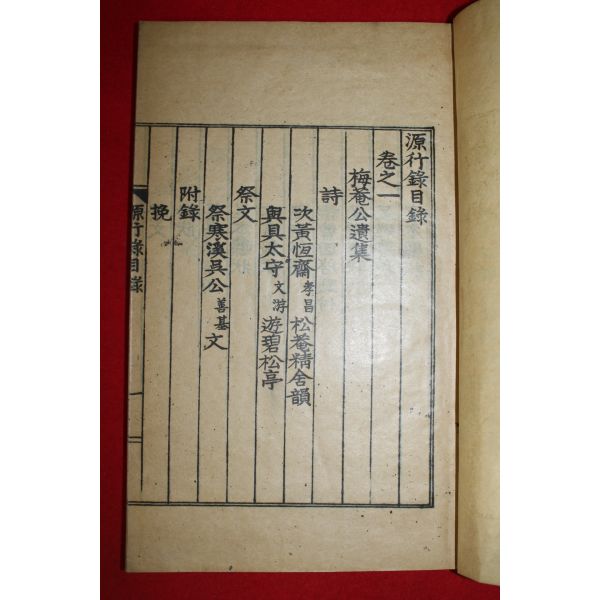 源行錄目錄
卷之一
梅菴公遺集
詩
次黃恆齋孝昌松菴精舍韻
與具太守文游遊碧松亭
祭文
祭寒溪吳公善基文
附錄
挽
源行錄目錄
一